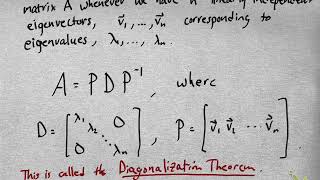 matrix A whenever we have n linearly independent
eigenvectors, v⃗₁, ..., v⃗ₙ corresponding to
eigenvalues, λ₁, ..., λₙ.
A = P D P⁻¹, where
D = [λ₁ λ₂ ⋱ λₙ 0 0], P = [v⃗₁ v⃗₂ ⋯ v⃗ₙ]
This is called the Diagonalization Theorem.